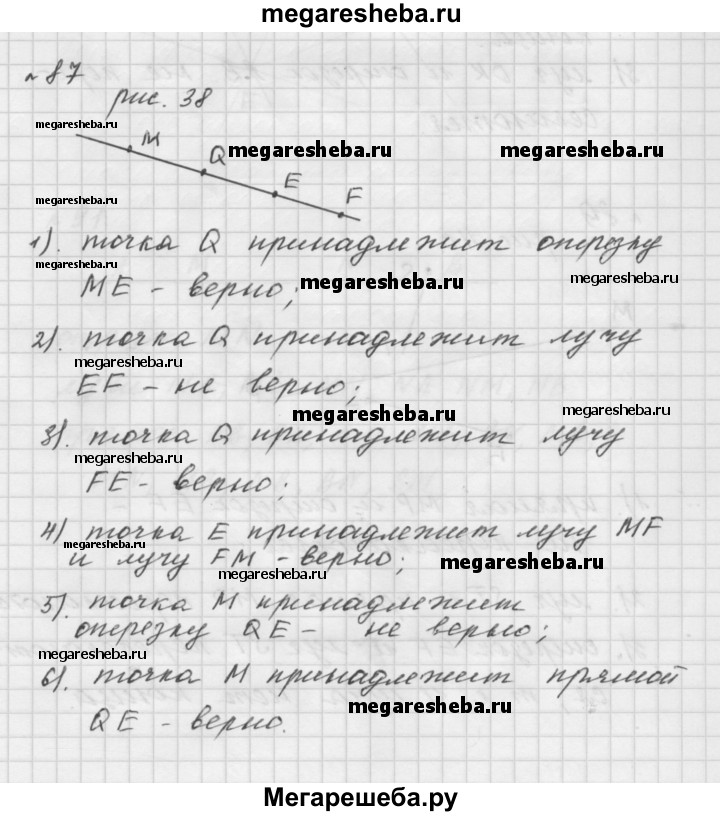 megaresheba.ru
№87
рис. 38
megaresheba.ru
M
Q
megaresheba.ru
megaresheba.ru
E
F
megaresheba.ru
1). точка Q принадлежит отрезку
ME - верно;
megaresheba.ru
megaresheba.ru
2). точка Q принадлежит лучу
megaresheba.ru
EF - не верно;
megaresheba.ru
megaresheba.ru
3). точка Q принадлежит лучу
megaresheba.ru
FE - верно;
4) точка E принадлежит лучу MF
megaresheba.ru
и лучу FM - верно;
megaresheba.ru
megaresheba.ru
5). точка M принадлежит
отрезку QE - не верно;
megaresheba.ru
6). точка M принадлежит прямой
megaresheba.ru
QE - верно.
Мегарешеба.ру